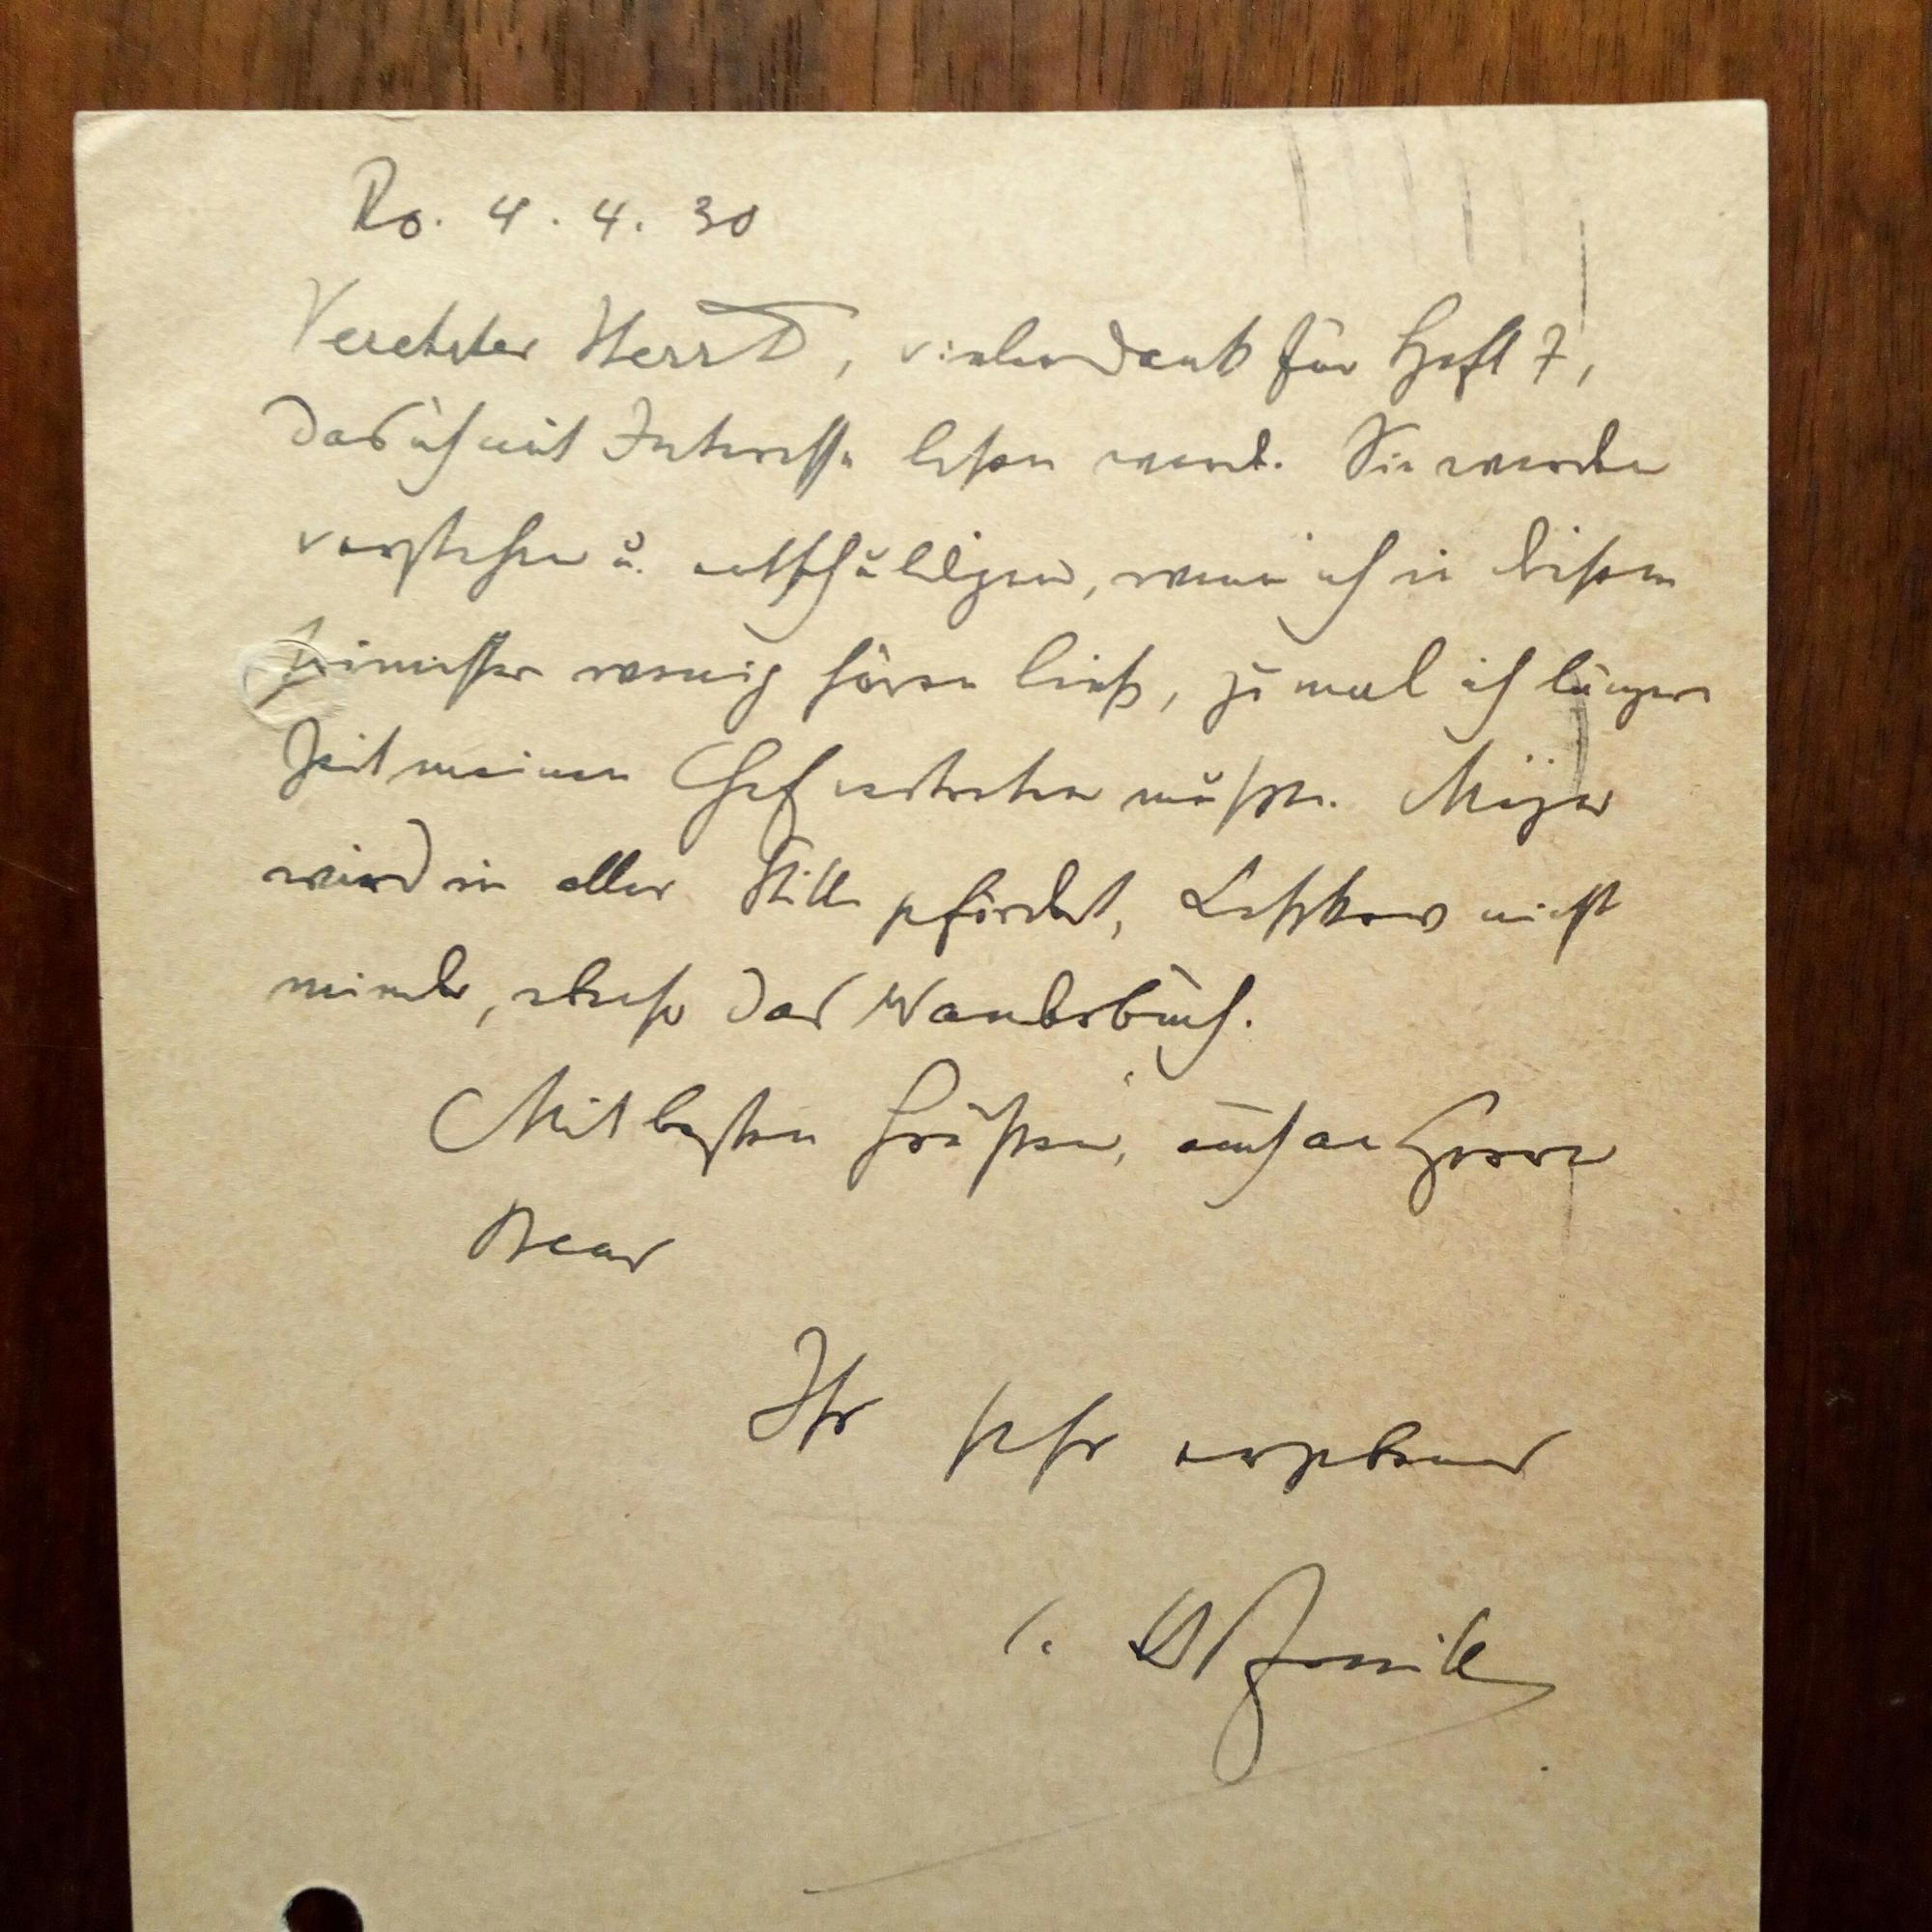 Ro. 4. 4. 30
Verehrter Herr D, vielen Dank für Heft 7,
das ich mit Interesse lesen werde. Sie werden
verstehen u. entschuldigen, wenn ich in diesem
Trimester wenig hören ließ, zumal ich längere
Zeit meinen Chef vertreten mußte.
wird in aller Stille gefördert, nicht
minder, ebenso das
Mit besten Grüßen, auch an Herrn
Ihr sehr ergebener